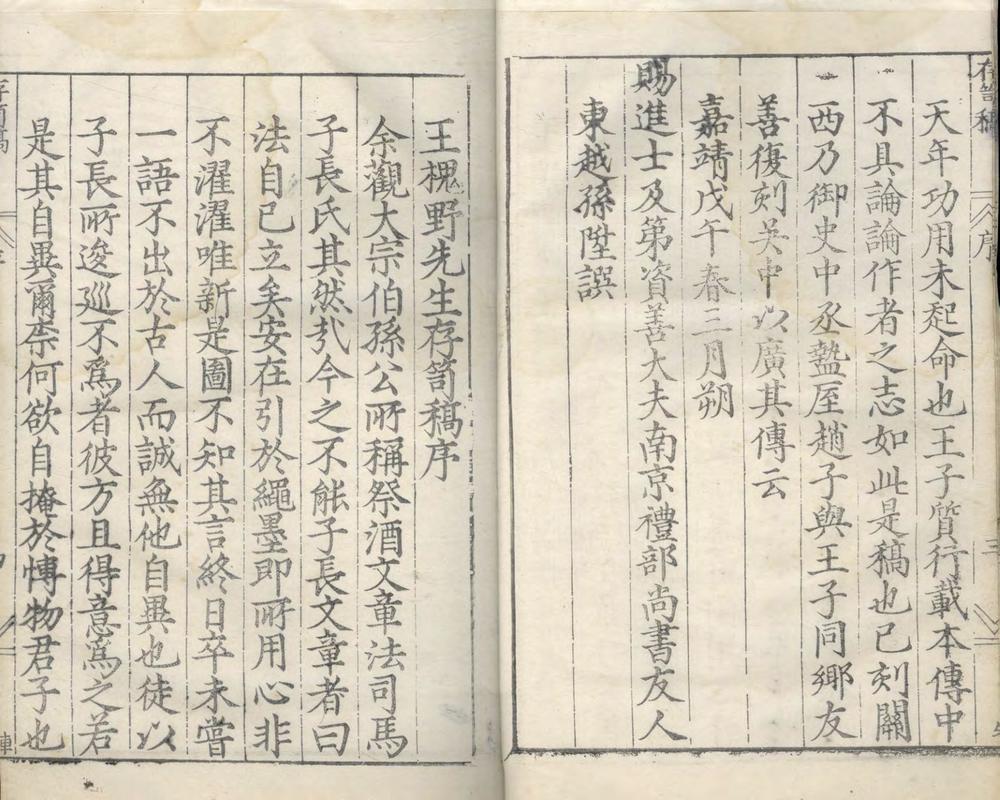 存笥稿
序
三
天年功用未起命也王子質行載本傳中
不具論論作者之志如此是稿也已刻關
西乃御史中丞盩厔趙子與王子同鄉友
善復刻吳中以廣其傳云
嘉靖戊午春三月朔
賜進士及第資善大夫南京禮部尚書友人
東越孫陞譔
王槐野先生存笥稿序
余觀大宗伯孫公所稱祭酒文章法司馬
子長氏其然哉今之不能子長文章者曰
法自己立矣安在引於繩墨即所用心非
不濯濯唯新是圖不知其言終日卒未嘗
一語不出於古人而誠無他自異也徒以
子長所逡巡不爲者彼方且得意爲之若
是其自異爾柰何欲自掩於慱物君子也